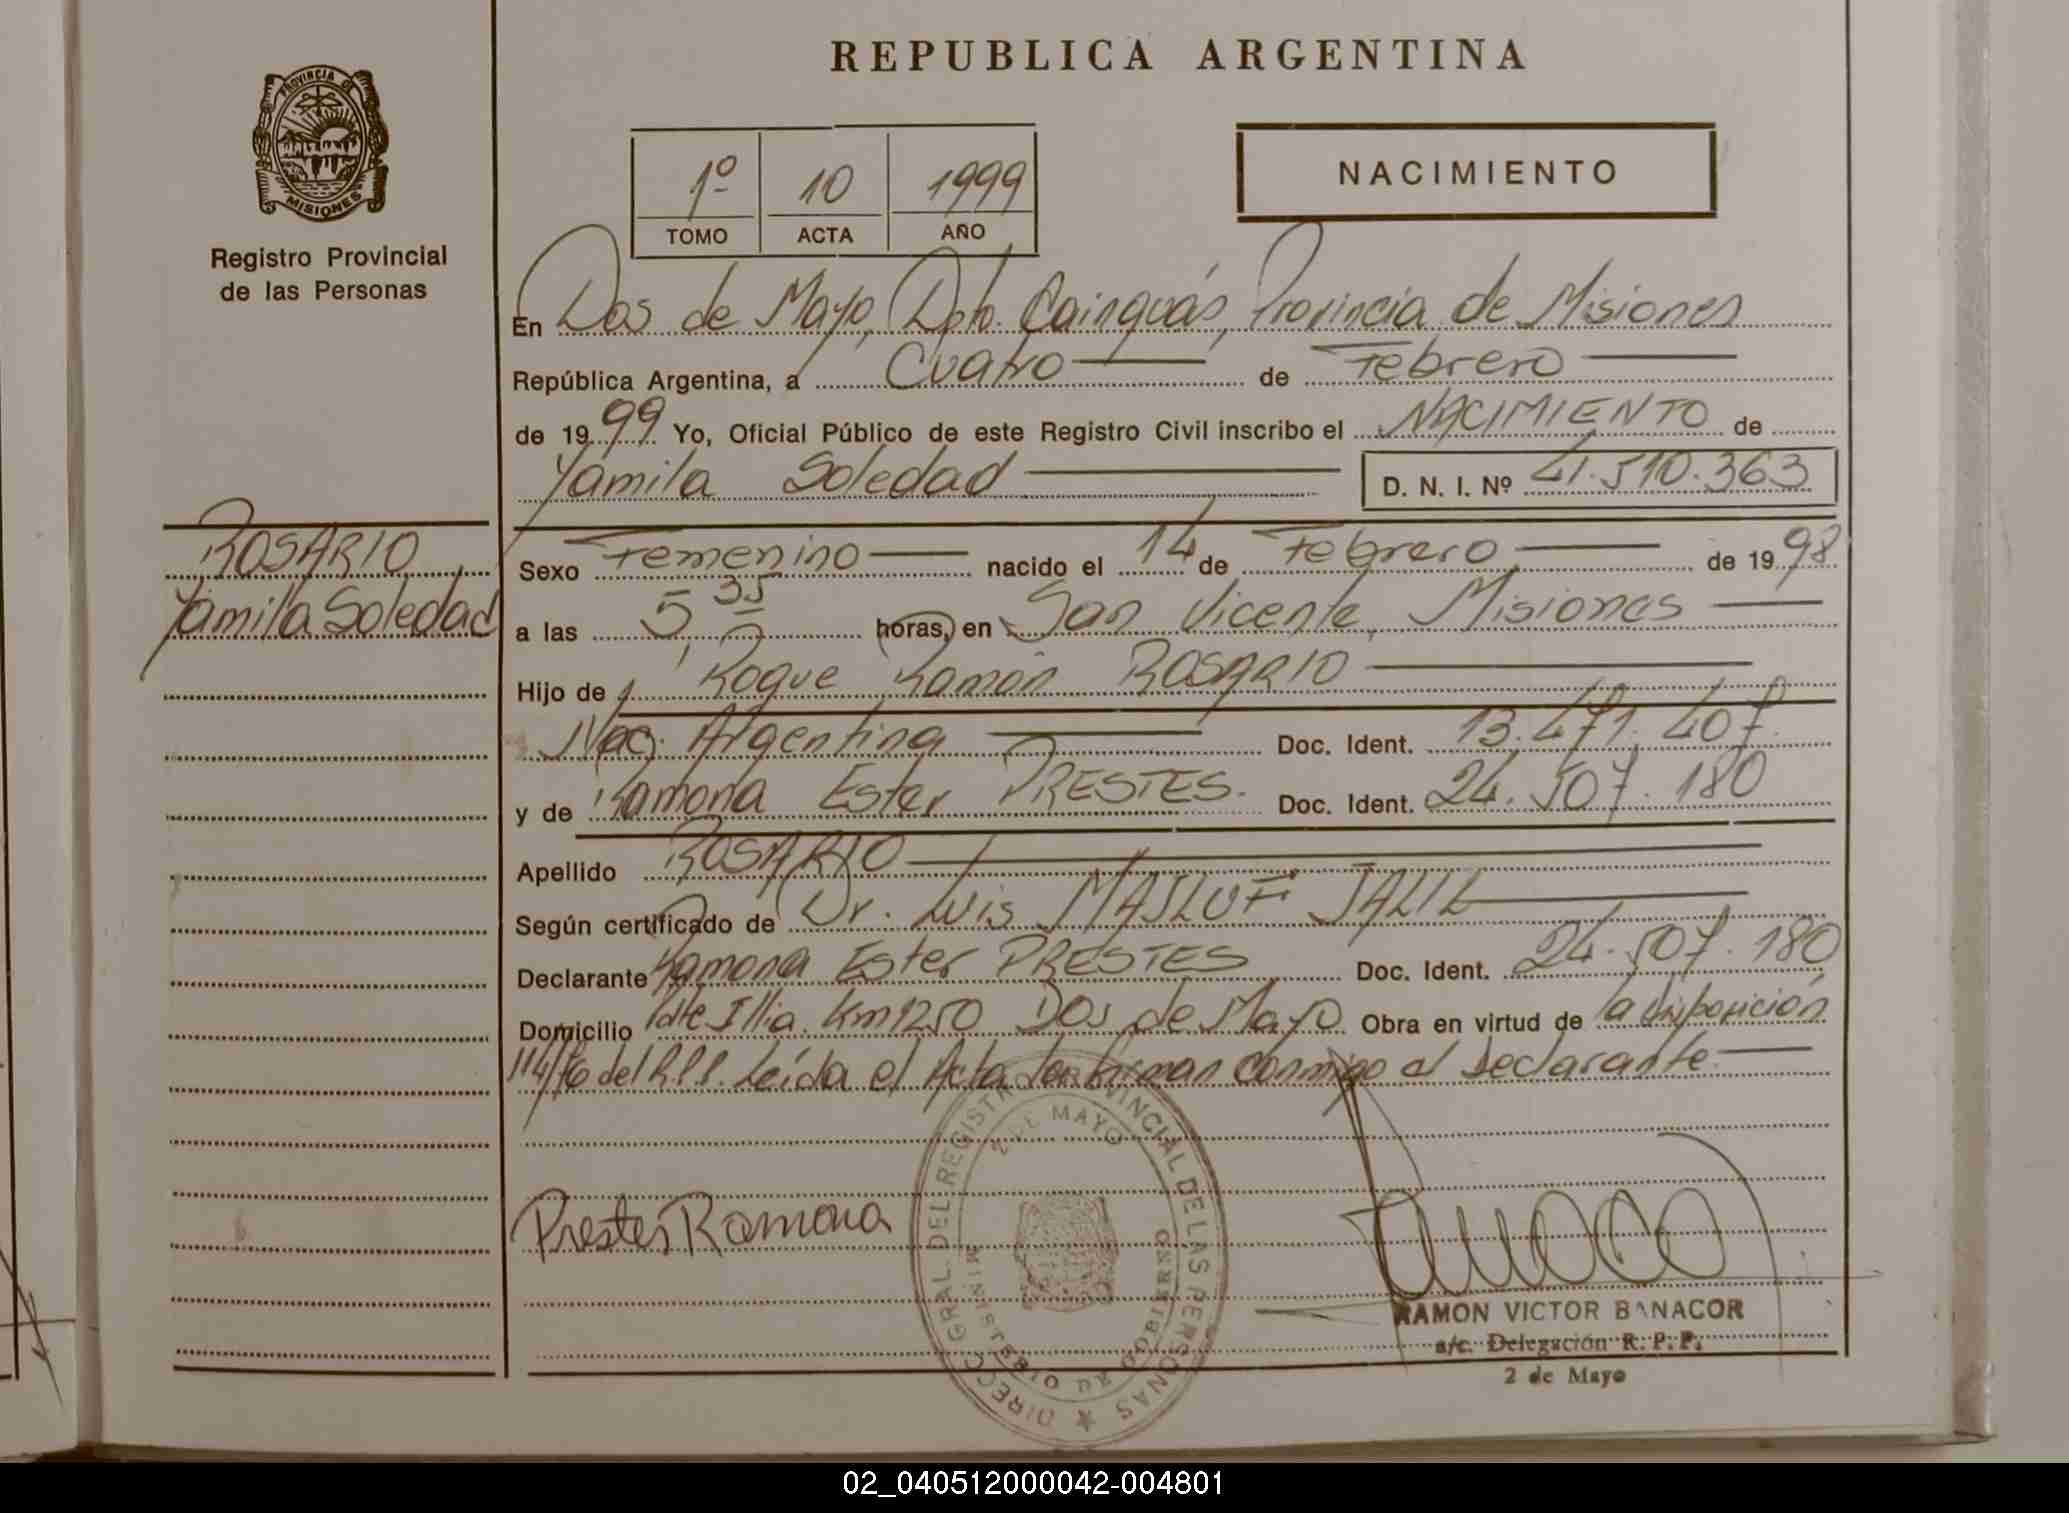 REPUBLICA ARGENTINA
PROVINCIA DE
MISIONES
Registro Provincial
de las Personas
1º 10 1999
TOMO ACTA AÑO
NACIMIENTO
En Dos de Mayo, Dpto. Cainguás, Provincia de Misiones
República Argentina, a Cuatro de Febrero
de 1999 Yo, Oficial Público de este Registro Civil inscribo el NACIMIENTO de
Yamila Soledad D. N. I. Nº 41.510.363
ROSARIO
Yamila Soledad
Sexo Femenino nacido el 14 de Febrero de 1998
a las 5,35 horas, en San Vicente, Misiones
Hijo de Roque Ramón ROSARIO
Nac. Argentina Doc. Ident. 13.471.407
y de Ramona Ester PRESTES. Doc. Ident. 24.507.180
Apellido ROSARIO
Según certificado de Dr. Luis MASLUF JALIL
Declarante Ramona Ester PRESTES Doc. Ident. 24.507.180
Domicilio Pdte Illia. Km 1250 Dos de Mayo Obra en virtud de la disposición
114/76 del R.P.P. Leída el Acta firman conmigo el declarante
DIRECC. GRAL. DEL REGISTRO PROVINCIAL DE LAS PERSONAS
2 DE MAYO
MINISTERIO DE GOBIERNO
Prestes Ramona
RAMON VICTOR BANACOR
a/c. Delegación R. P. P.
2 de Mayo
02_040512000042-004801